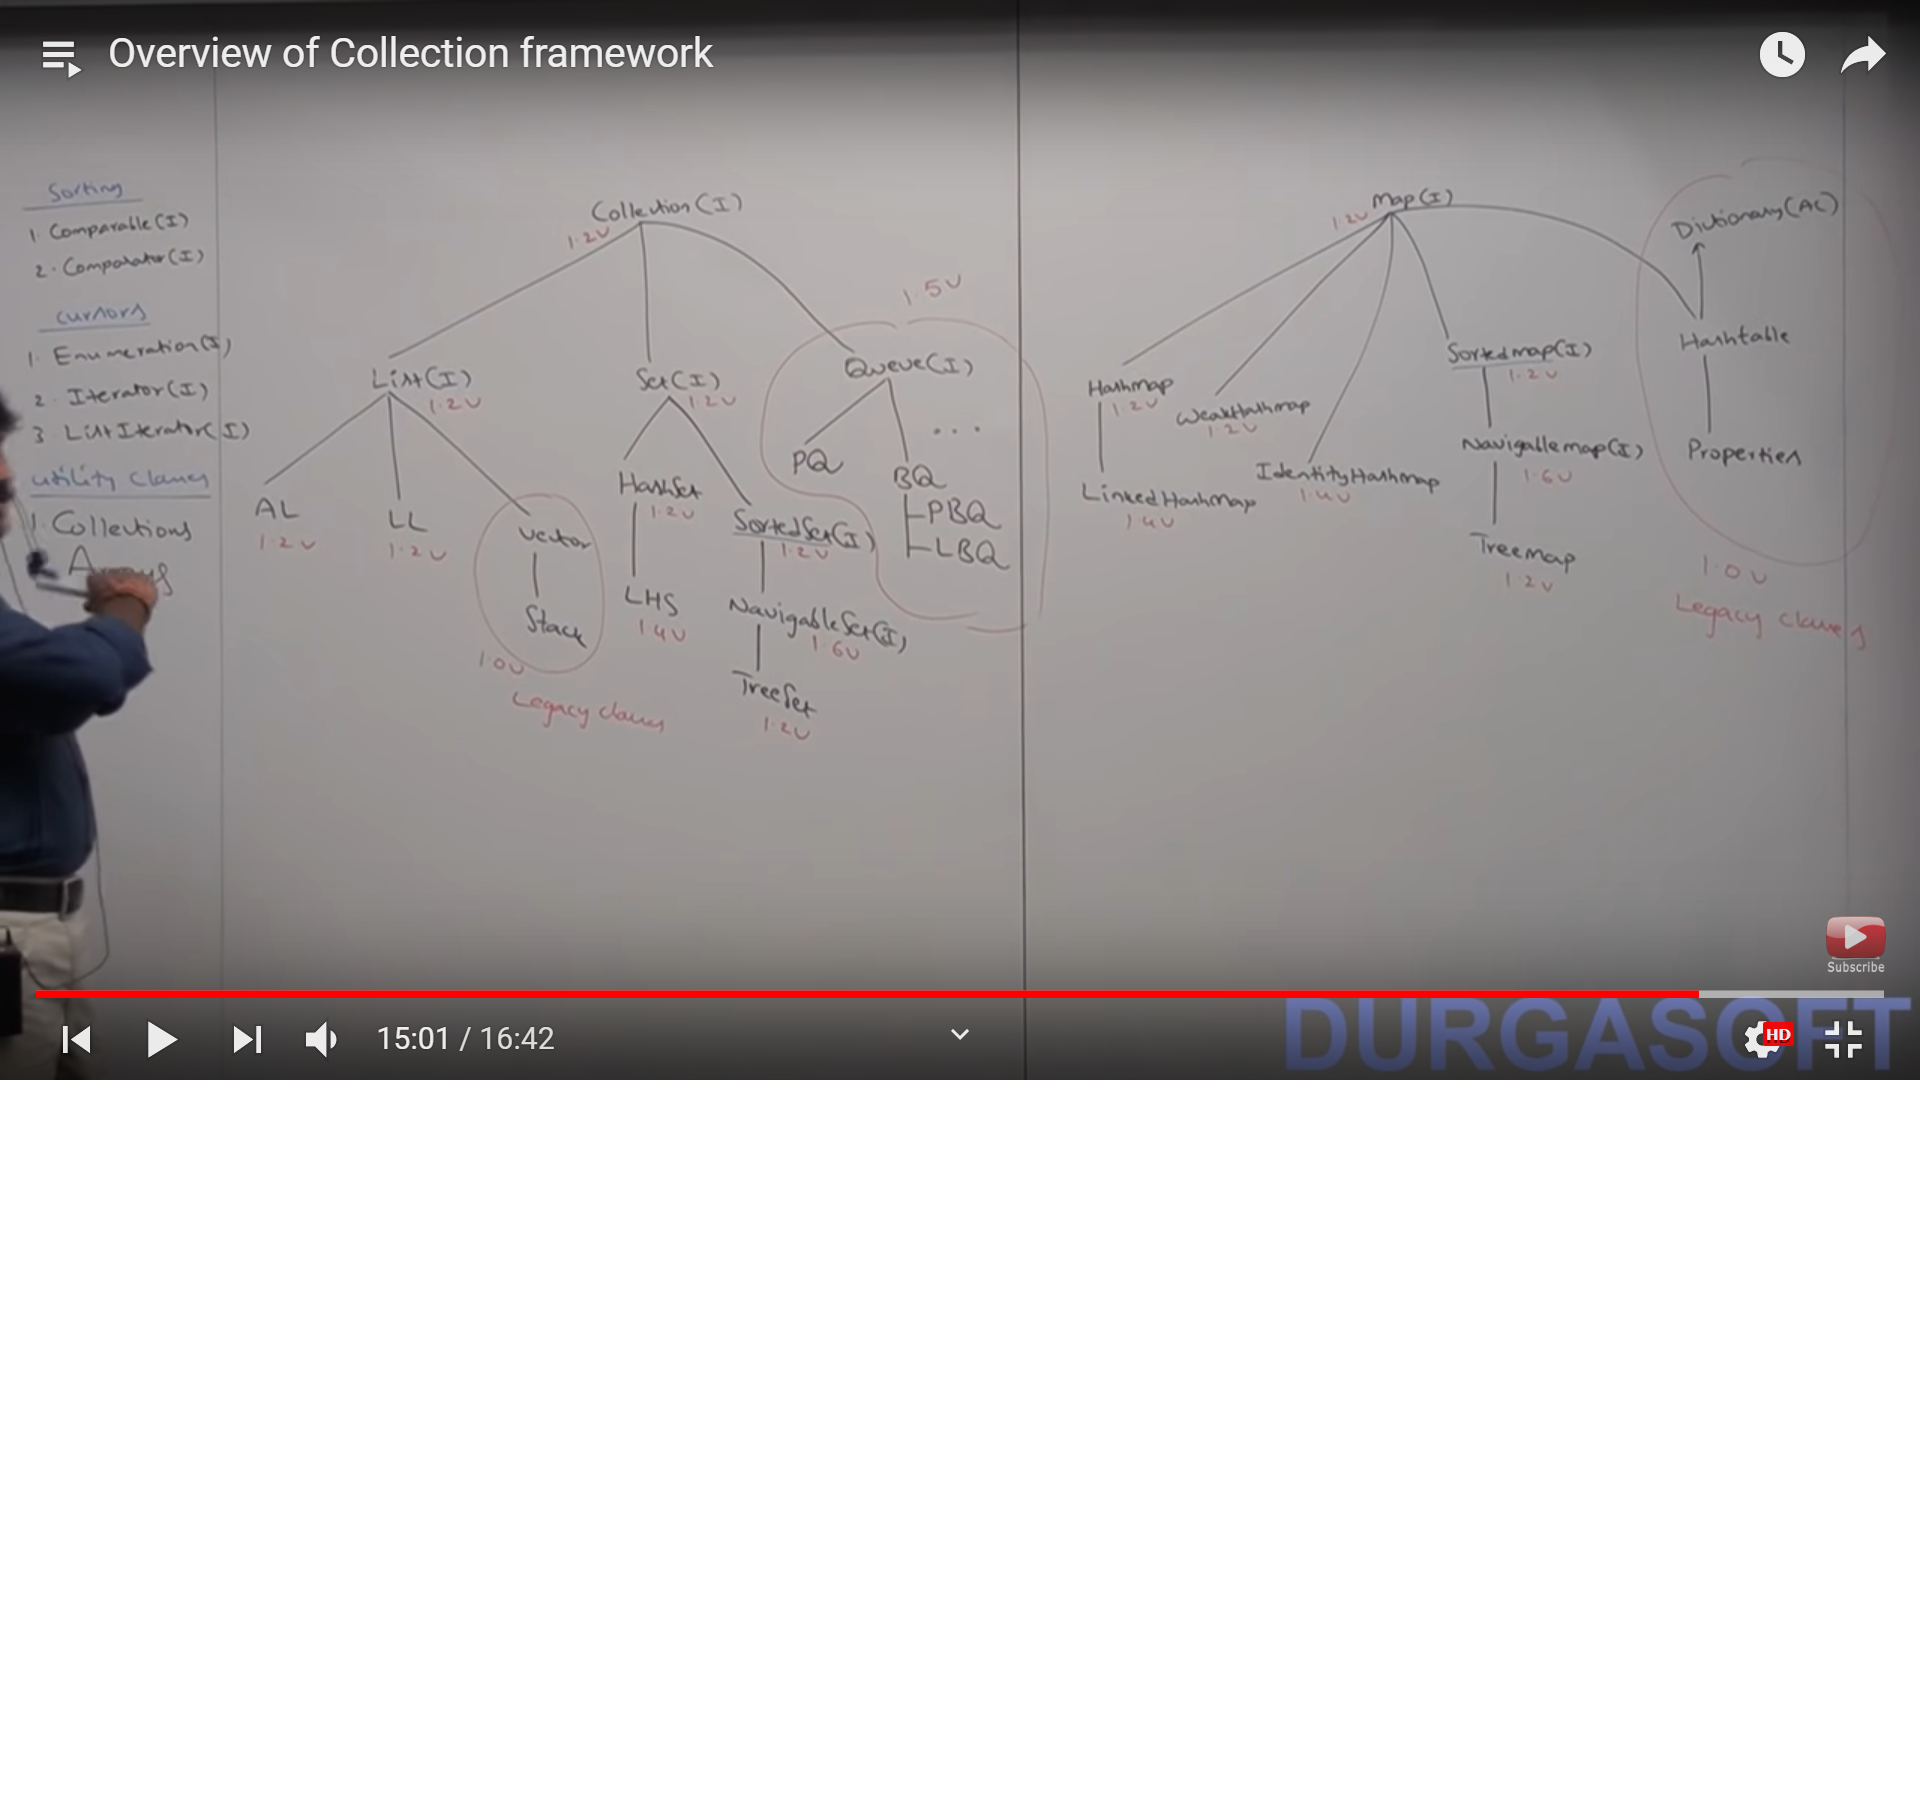 Overview of Collection framework
Sorting
1. Comparable(I)
2. Comparator(I)
Cursors
1. Enumeration(I)
2. Iterator(I)
3. ListIterator(I)
Utility Classes
1. Collections
Arrays
Collection(I)
1.2V
List(I)
1.2V
AL
1.2V
LL
1.2V
Vector
Stack
1.0V
Legacy classes
Set(I)
1.2V
HashSet
1.2V
LHS
1.4V
SortedSet(I)
1.2V
NavigableSet(I)
1.6V
TreeSet
1.2V
1.5V
Queue(I)
PQ
BQ
...
PBQ
LBQ
Map(I)
1.2V
Hashmap
1.2V
LinkedHashMap
1.4V
WeakHashmap
1.2V
IdentityHashmap
1.4V
Sortedmap(I)
1.2V
Navigablemap(I)
1.6V
Treemap
1.2V
Dictionary(AC)
Hashtable
Properties
1.0V
Legacy classes
Subscribe
15:01 / 16:42
HD
DURGASOFT